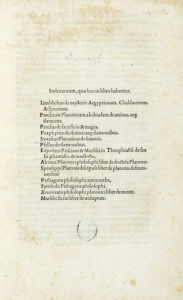 Index eorum, quae hoc in libro habentur.
Iamblichus de mysteriis Aegyptiorum. Chaldaeorum.
Assyriorum.
Proclus in Platonicum alcibiadem de anima, atq;
daemone.
Proclus de sacrificio & magia.
Porphyrius de diuinis atq; daemonibus.
Synesius Platonicus de somniis.
Psellus de daemonibus.
Expositio Prisciani & Marsilii in Theophrastū de sen
su, phantasia, & intellectu.
Alcinoi Platonici philosophi liber de doctrīa Platonis.
Speusippi Platonis discipuli liber de platonis difini
tionibus
Pythagorae philosophi aurea uerba.
Symbola Pithagorae philosophi.
Xenocratis philosophi platonici liber de morte.
Marsilii ficini liber de uoluptate.